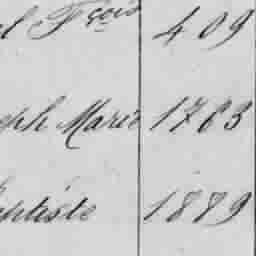 l Fçois 409
eph Marie 1763
aptiste 1889